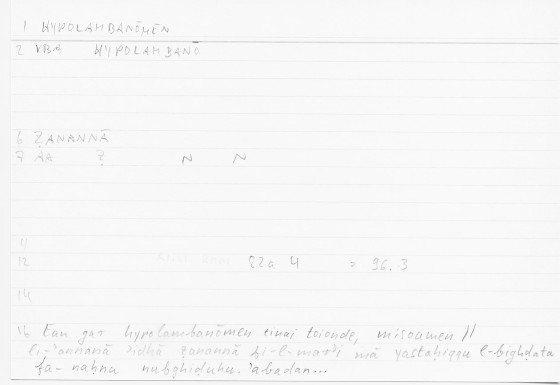 1 HYPOLAMBANŌMĒN
2 VBA HYPOLAMBANŌ
6 ẒANANNĀ
7 AA Ẓ N N
11
12 82a 4 = 96.3
14
15 Ean gar hypolambanōmen einai toionde, misoumen //
li-'annanā 'idhā ẓanannā bi-l-mar'i mā yastaḥiqqu l-bighdata
fa-naḥnu nubghiduhu. 'abadan...